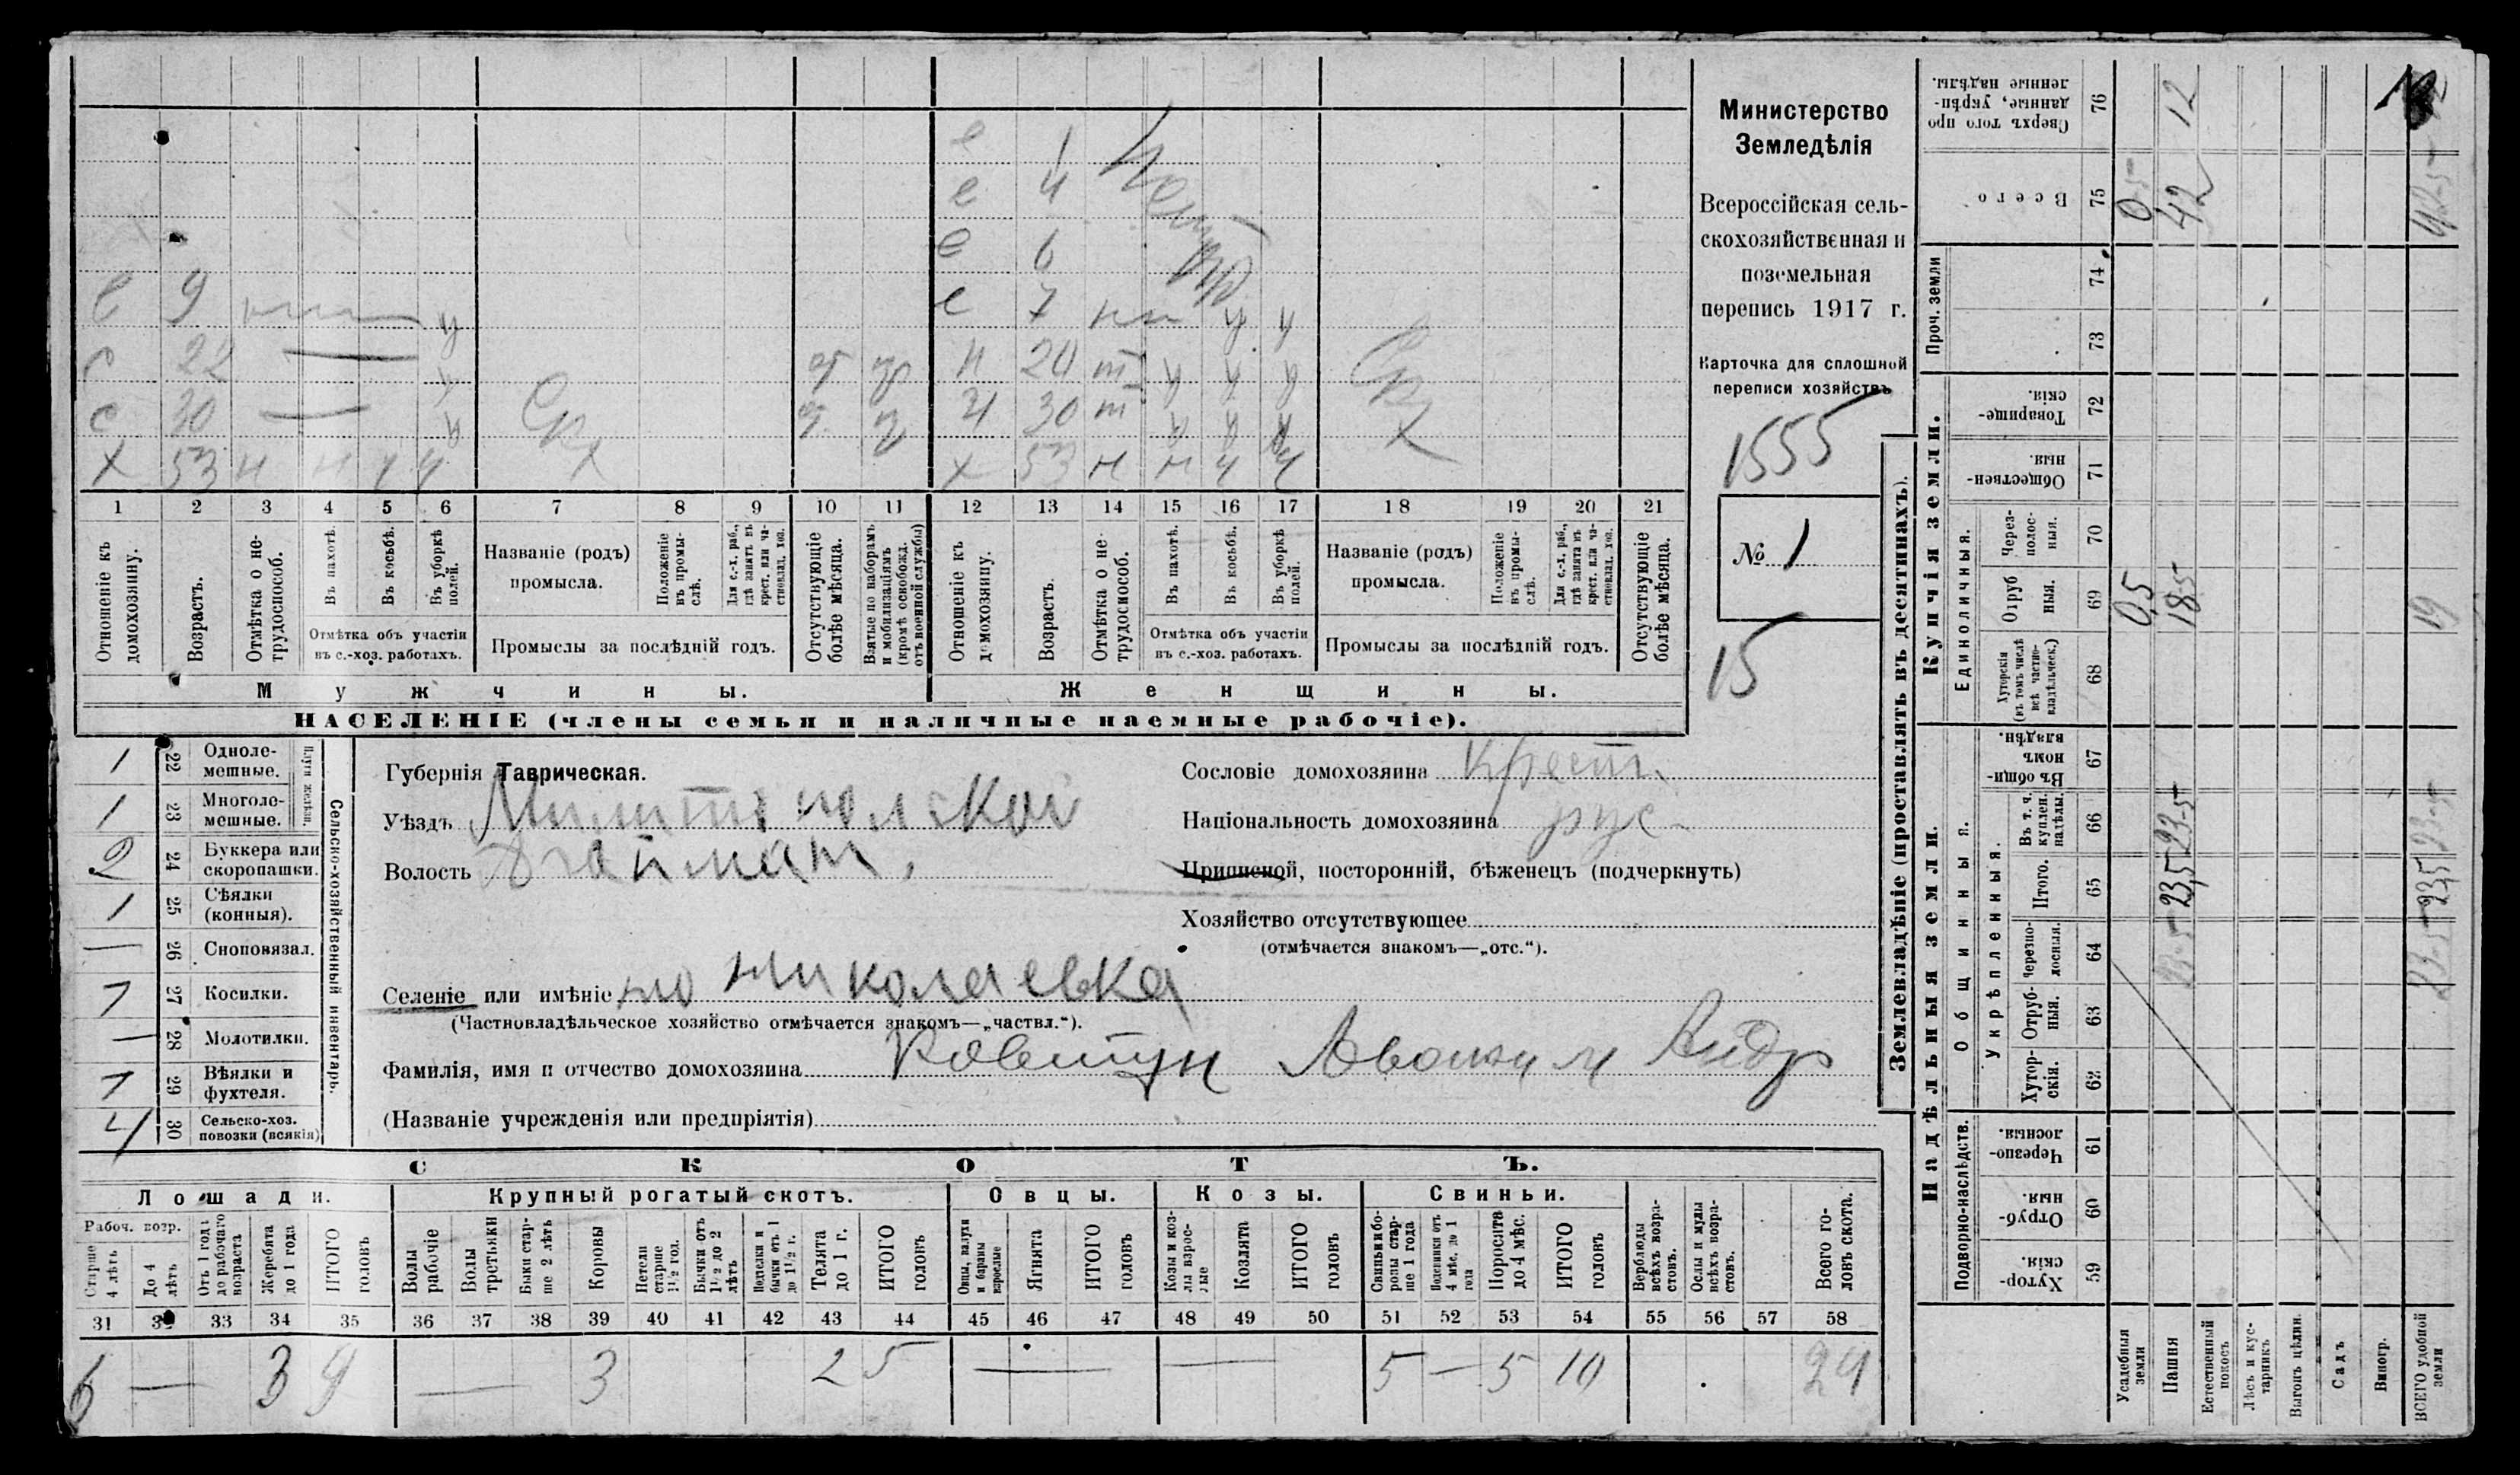 Министерство
Земледѣлія
Всероссійская сель-
скохозяйственная и
поземельная
перепись 1917 г.
Карточка для сплошной
переписи хозяйствъ
1555
№ 1
15
е 1
е 4
е 6
е 9 у е 7 нп у у
с 22 н 20 т у у у
с 30 у 30 т у у у
х 53 н н у у х 53 н н у у
1 2 3 4 5 6 7 8 9 10 11 12 13 14 15 16 17 18 19 20 21
Отношеніе къ домохозяину.
Возрастъ.
Отмѣтка о не-трудоспособ.
Въ пахотѣ.
Въ косьбѣ.
Въ уборкѣ полей.
Отмѣтка объ участіи
въ с.-хоз. работахъ.
Названіе (родъ)
промысла.
Положеніе въ промы-слѣ.
Для с.-х. раб., гдѣ занятъ въ крест. или ча-стновлад. хоз.
Промыслы за послѣдній годъ.
Отсутствующіе болѣе мѣсяца.
Взятые по наборамъ и мобилизаціямъ (кромѣ освобожд. отъ военной службы)
Отношеніе къ домохозяину.
Возрастъ.
Отмѣтка о не-трудоспособ.
Въ пахотѣ.
Въ косьбѣ.
Въ уборкѣ полей.
Отмѣтка объ участіи
въ с.-хоз. работахъ.
Названіе (родъ)
промысла.
Положеніе въ промы-слѣ.
Для с.-х. раб., гдѣ занята въ крест. или ча-стновлад. хоз.
Промыслы за послѣдній годъ.
Отсутствующіе болѣе мѣсяца.
Мужчины.
Женщины.
НАСЕЛЕНІЕ (члены семьи и наличные наемные рабочіе).
Сельско-хозяйственный инвентарь.
Плуги желѣзн.
1 22 Одноле-мешные.
1 23 Многоле-мешные.
2 24 Буккера или скоропашки.
1 25 Сѣялки (конныя).
— 26 Сноповязал.
1 27 Косилки.
— 28 Молотилки.
1 29 Вѣялки и фухтеля.
4 30 Сельско-хоз. повозки (всякія)
Губернія Таврическая.
Уѣздъ
Волость
Селеніе или имѣніе Николаевка
(Частновладѣльческое хозяйство отмѣчается знакомъ—„частвл.“).
Фамилія, имя и отчество домохозяина Ковтун Андр
(Названіе учрежденія или предпріятія)
Сословіе домохозяина крест.
Національность домохозяина рус.
Приписной, посторонній, бѣженецъ (подчеркнуть)
Хозяйство отсутствующее
(отмѣчается знакомъ—„отс.“).
СКОТЪ.
Лошади. Крупный рогатый скотъ. Овцы. Козы. Свиньи.
Рабоч. возр.
Старше 4 лѣтъ
До 4 лѣтъ
Отъ 1 года до рабочаго возраста
Жеребята до 1 года
ИТОГО головъ
Волы рабочіе
Волы третьяки
Быки стар-ше 2 лѣтъ
Коровы
Нетели старше 1½ год.
Бычки отъ 1½ до 2 лѣтъ
Подтелки и бычки отъ 1 до 1½ г.
Телята до 1 г.
ИТОГО головъ
Овцы, валухи и бараны взрослые
Ягнята
ИТОГО головъ
Козы и коз-лы взрос-лые
Козлята
ИТОГО головъ
Свиньи и бо-ровы стар-ше 1 года
Подсвинки отъ 4 мѣс. до 1 года
Поросята до 4 мѣс.
ИТОГО головъ
Верблюды всѣхъ возра-стовъ.
Ослы и мулы всѣхъ возра-стовъ.
Всего го-ловъ скота.
31 33 34 35 36 37 38 39 40 41 42 43 44 45 46 47 48 49 50 51 52 53 54 55 56 57 58
6 — 3 9 — 3 2 5 — — 5 — 5 10 24
Землевладѣніе (проставлять въ десятинахъ).
Надѣльныя земли.
Купчія земли.
Проч. земли
Подворно-наслѣдств.
Общинныя.
Укрѣпленныя.
Единоличныя.
Хутор-скія. 59
Отруб-ныя. 60
Черезпо-лосныя. 61
Хутор-скія. 62
Отруб-ныя. 63
Черезпо-лосныя. 64
Итого. 65
Въ т. ч. куплен. надѣлы. 66
Въ общи-номъ владѣн. 67
Хуторскія (въ томъ числѣ всѣ частно-владѣльческ.) 68
Отруб-ныя. 69
Через-полос-ныя. 70
Обществен-ныя. 71
Товарище-скія. 72
73
74
Всего 75
Сверхъ того про-данные, укрѣп-ленные надѣлы. 76
Усадебныя земли 0,5 0,5
Пашня 23,5 23,5 18,5 42 12
Естественный покосъ
Лѣсъ и кус-тарникъ
Выгонъ цѣлин.
Садъ
Виногр.
ВСЕГО удобной земли 23,5 23,5 23,5 19 42,5